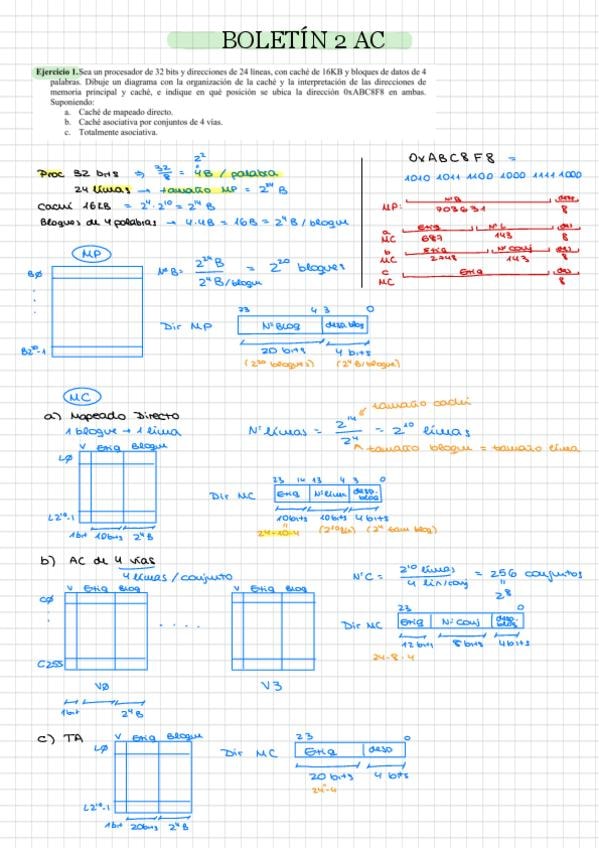 BOLETÍN 2 AC
Ejercicio 1. Sea un procesador de 32 bits y direcciones de 24 líneas, con caché de 16KB y bloques de datos de 4
palabras. Dibuje un diagrama con la organización de la caché y la interpretación de las direcciones de
memoria principal y caché, e indique en qué posición se ubica la dirección 0xABC8F8 en ambas.
Suponiendo:
a. Caché de mapeado directo.
b. Caché asociativa por conjuntos de 4 vías.
c. Totalmente asociativa.
Proc 32 bits ⇒ 32/8 = 4B / palabra
2²
24 líneas → tamaño MP = 2²⁴ B
Caché 16KB = 2⁴·2¹⁰ = 2¹⁴ B
Bloques de 4 palabras → 4·4B = 16B = 2⁴ B/bloque
0xABC8F8 =
1010 1011 1100 1000 1111 1000
MP: NºB desp
703631 8
a MC Etiq NºL des
687 143 8
b MC Etiq Nºconj des
2748 143 8
c MC Etiq des
8
MP
BØ
B2²⁰-1
NºB = 2²⁴B / 2⁴B/bloque = 2²⁰ bloques
Dir MP
23 4 3 0
NºBloq desp. bloq
20 bits 4 bits
(2²⁰ bloques) (2⁴B/bloque)
MC
a) Mapeado Directo
1 bloque → 1 línea
V Etiq Bloque
LØ
L2¹⁰-1
1bit 10bits 2⁴B
tamaño caché
Nº líneas = 2¹⁴ / 2⁴ = 2¹⁰ líneas
tamaño bloque = tamaño línea
Dir MC
23 14 13 4 3 0
Etiq Nºlínea desp. bloq
10bits 10bits 4bits
24-10-4 (2⁴ tam bloq)
b) AC de 4 vías
4 líneas / conjunto
V Etiq Bloq V Etiq Bloq
CØ
C255
....
VØ V3
1bit 2⁴B
NºC = 2¹⁰ líneas / 4 lín/conj = 256 conjuntos
2⁸
Dir MC
23 0
Etiq Nºconj desp. bloq
12bits 8bits 4bits
24-8-4
c) TA
V Etiq Bloque
LØ
L2¹⁰-1
1bit 20bits 2⁴B
Dir MC
23 0
Etiq desp
20 bits 4 bits
24-4